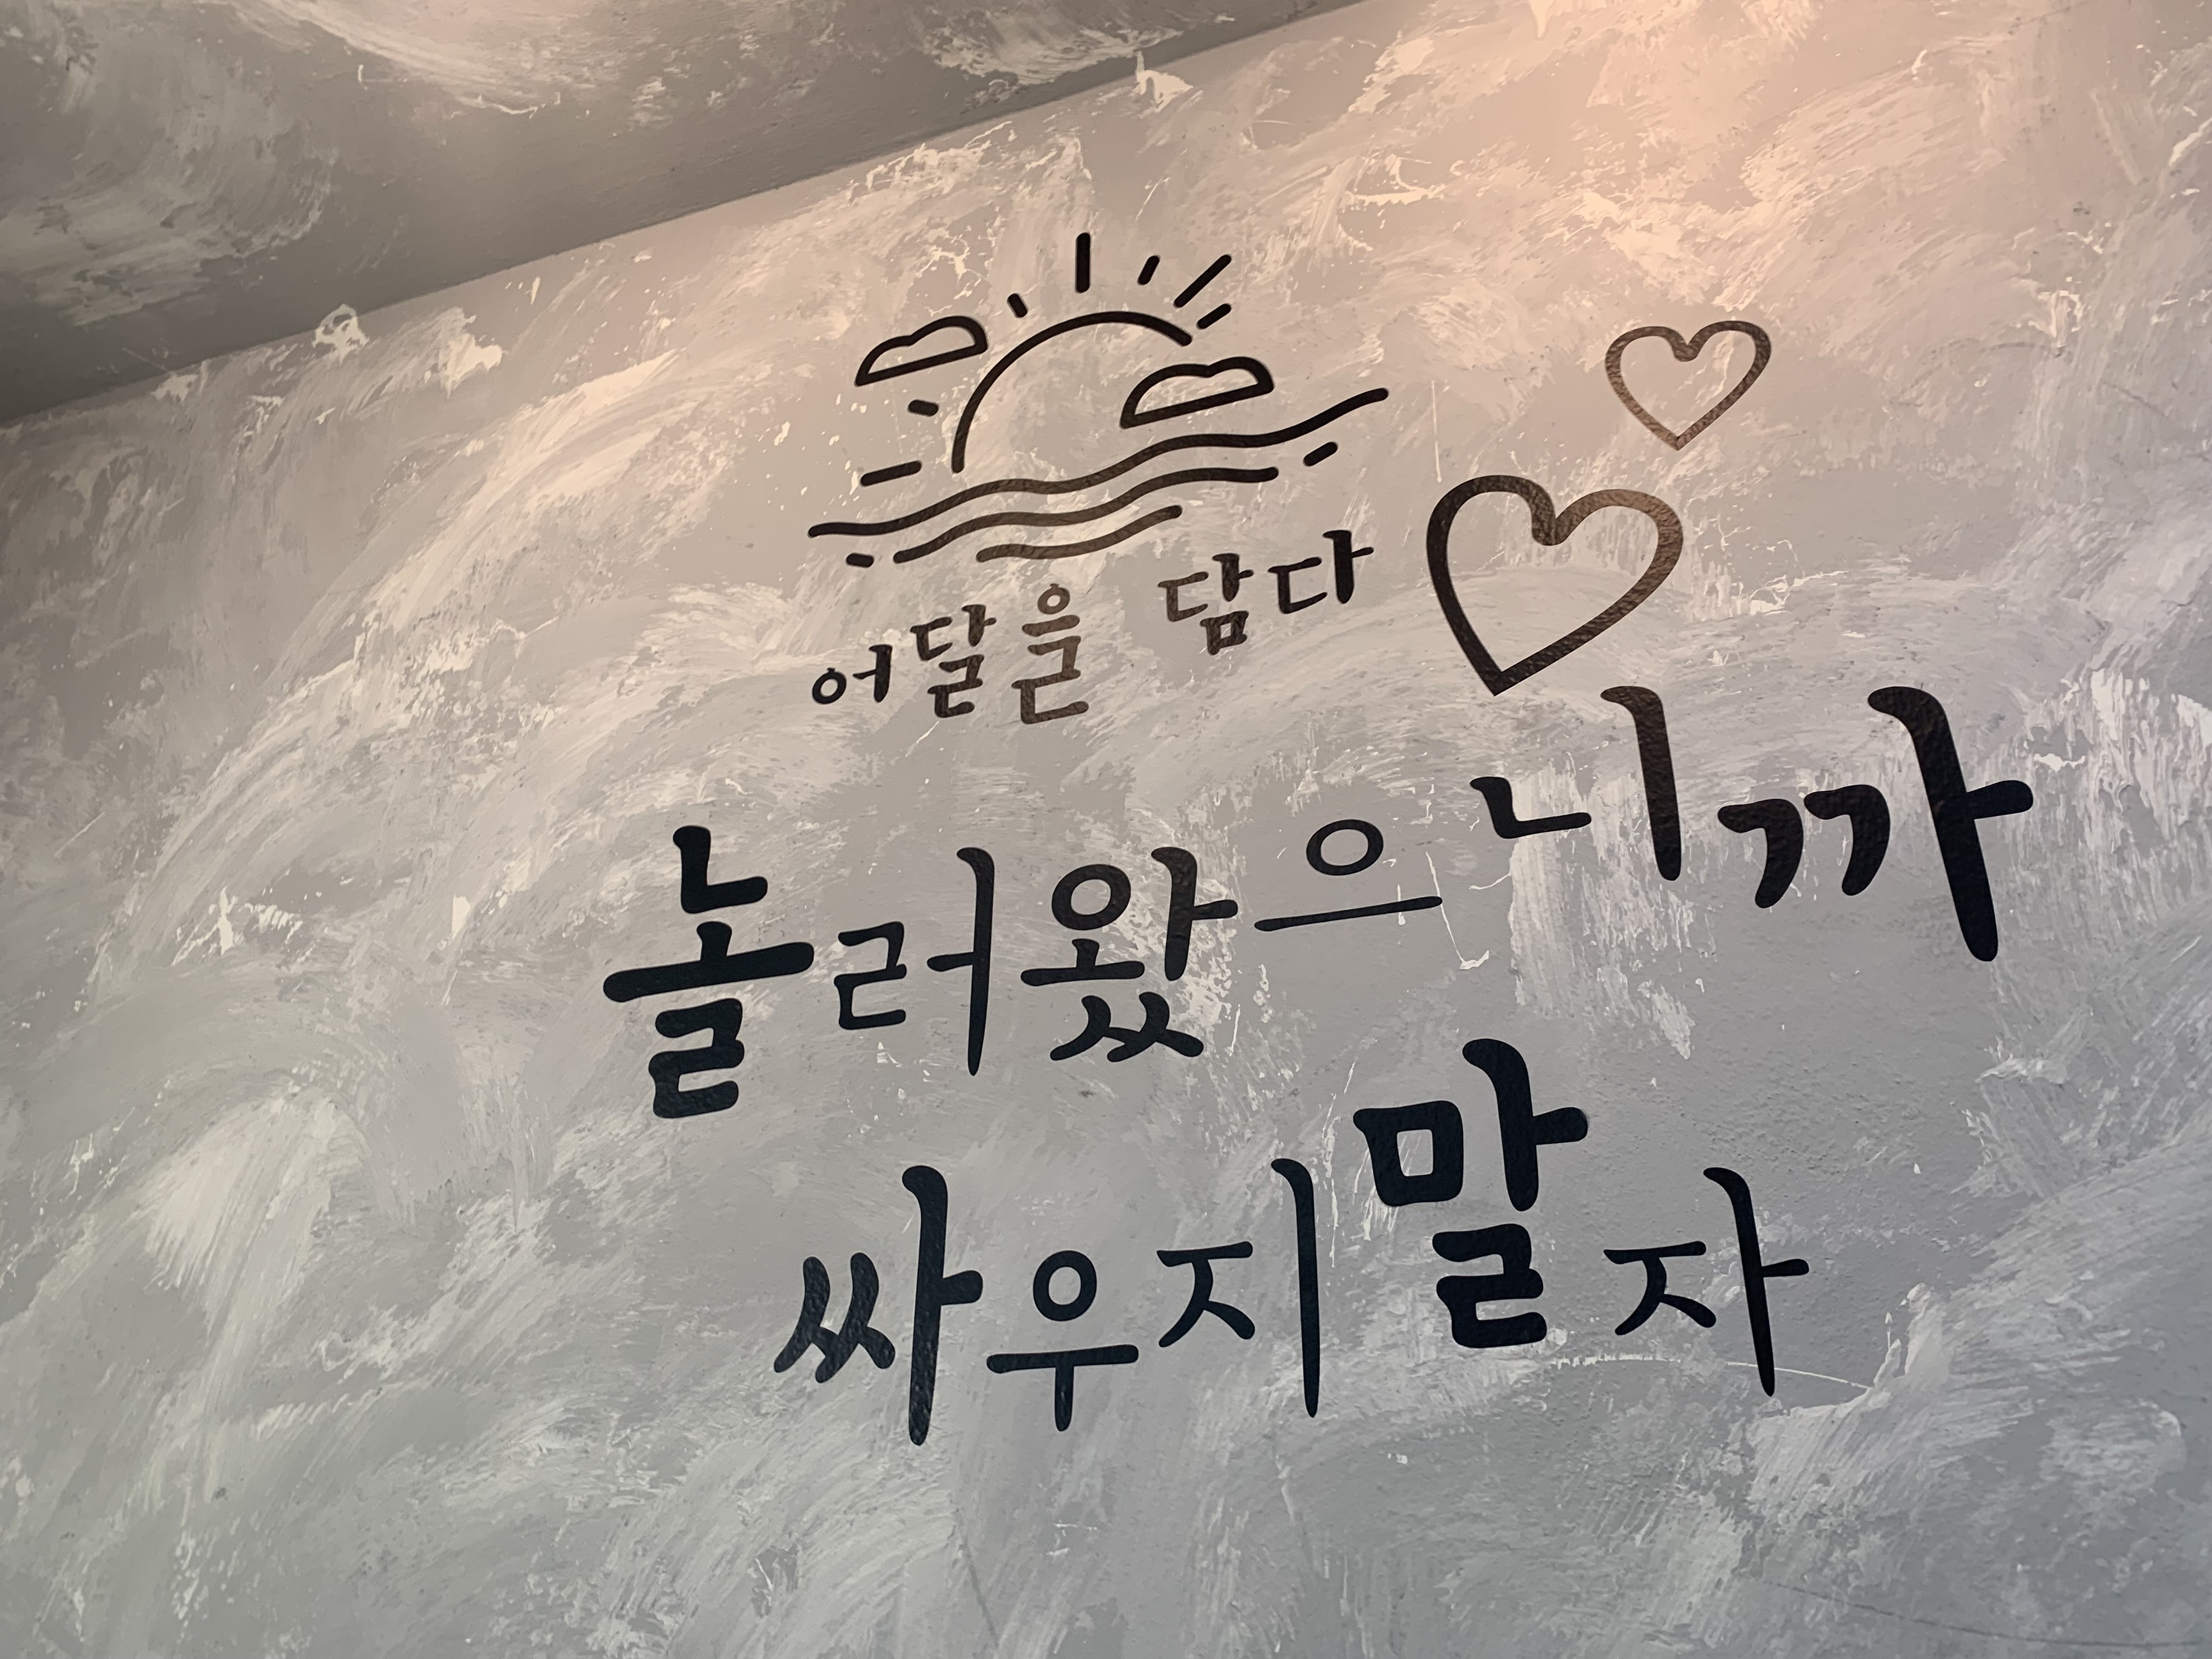 어달을 담다
놀러왔으니까
싸우지말자